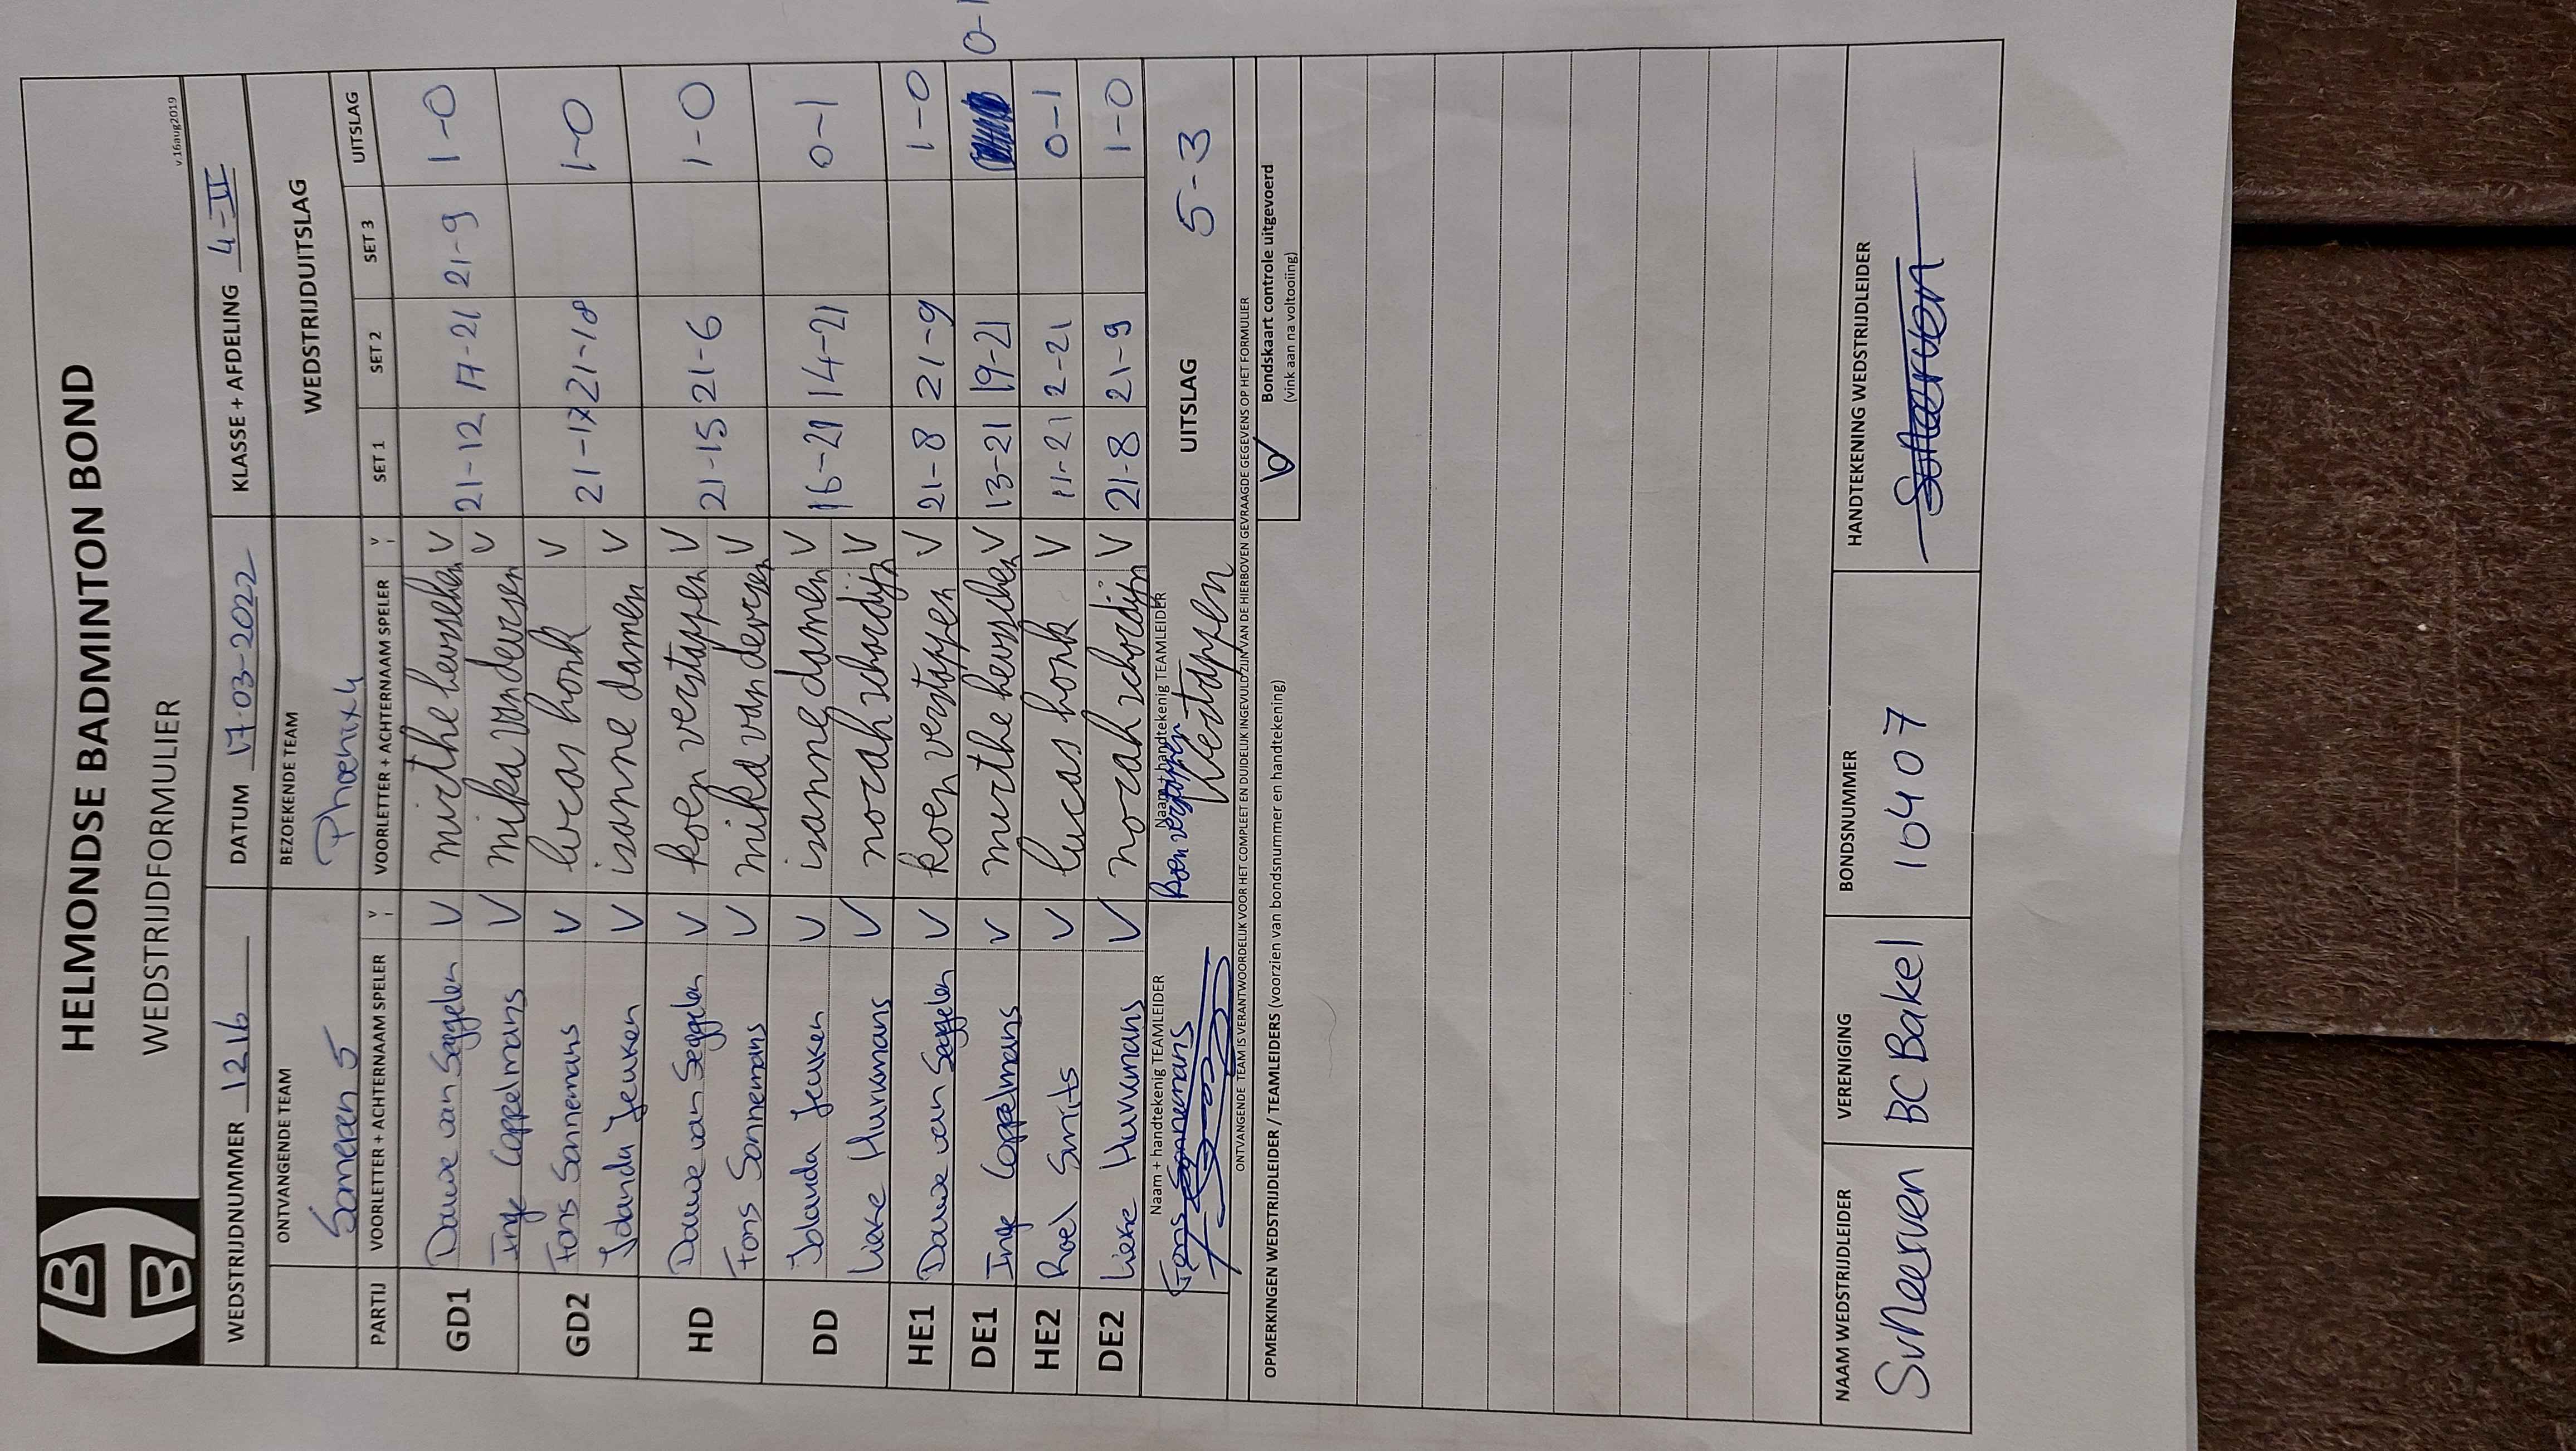 HELMONDSE BADMINTON BOND
WEDSTRIJDFORMULIER
v.16aug2019
WEDSTRIJDNUMMER 1216 DATUM 17-03-2022 KLASSE + AFDELING 4-II
ONTVANGENDE TEAM BEZOEKENDE TEAM WEDSTRIJDUITSLAG
Someren 5 Phoenix 4
PARTIJ VOORLETTER + ACHTERNAAM SPELER V VOORLETTER + ACHTERNAAM SPELER V SET 1 SET 2 SET 3 UITSLAG
GD1 Douwe van Seggelen V mirthe heusschen V 21-12 17-21 21-9 1-0
Inge Coppelmans V mika van deursen V
GD2 Fons Sonnemans V lucas honk V 21-17 21-18 1-0
Jolanda Jeuken V isanne damen V
HD Douwe van Seggelen V koen verstappen V 21-15 21-6 1-0
Fons Sonnemans V mika van deursen V
DD Jolanda Jeuken V isanne damen V 16-21 14-21 0-1
Lieke Hurkmans V norah schordijn V
HE1 Douwe van Seggelen V koen verstappen V 21-8 21-9 1-0
DE1 Inge Coppelmans V mirthe heusschen V 13-21 19-21 0-1
HE2 Roel Smits V lucas honk V 11-21 2-21 0-1
DE2 Lieke Hurkmans V norah schordijn V 21-8 21-9 1-0
Naam + handtekenig TEAMLEIDER Naam + handtekenig TEAMLEIDER UITSLAG 5-3
Fons Sonnemans Koen verstappen
Verstappen
ONTVANGENDE TEAM IS VERANTWOORDELIJK VOOR HET COMPLEET EN DUIDELIJK INGEVULD ZIJN VAN DE HIERBOVEN GEVRAAGDE GEGEVENS OP HET FORMULIER
OPMERKINGEN WEDSTRIJDLEIDER / TEAMLEIDERS (voorzien van bondsnummer en handtekening) V Bondskaart controle uitgevoerd
(vink aan na voltooiing)
NAAM WEDSTRIJDLEIDER VERENIGING BONDSNUMMER HANDTEKENING WEDSTRIJDLEIDER
SvNeerven BC Bakel 10407